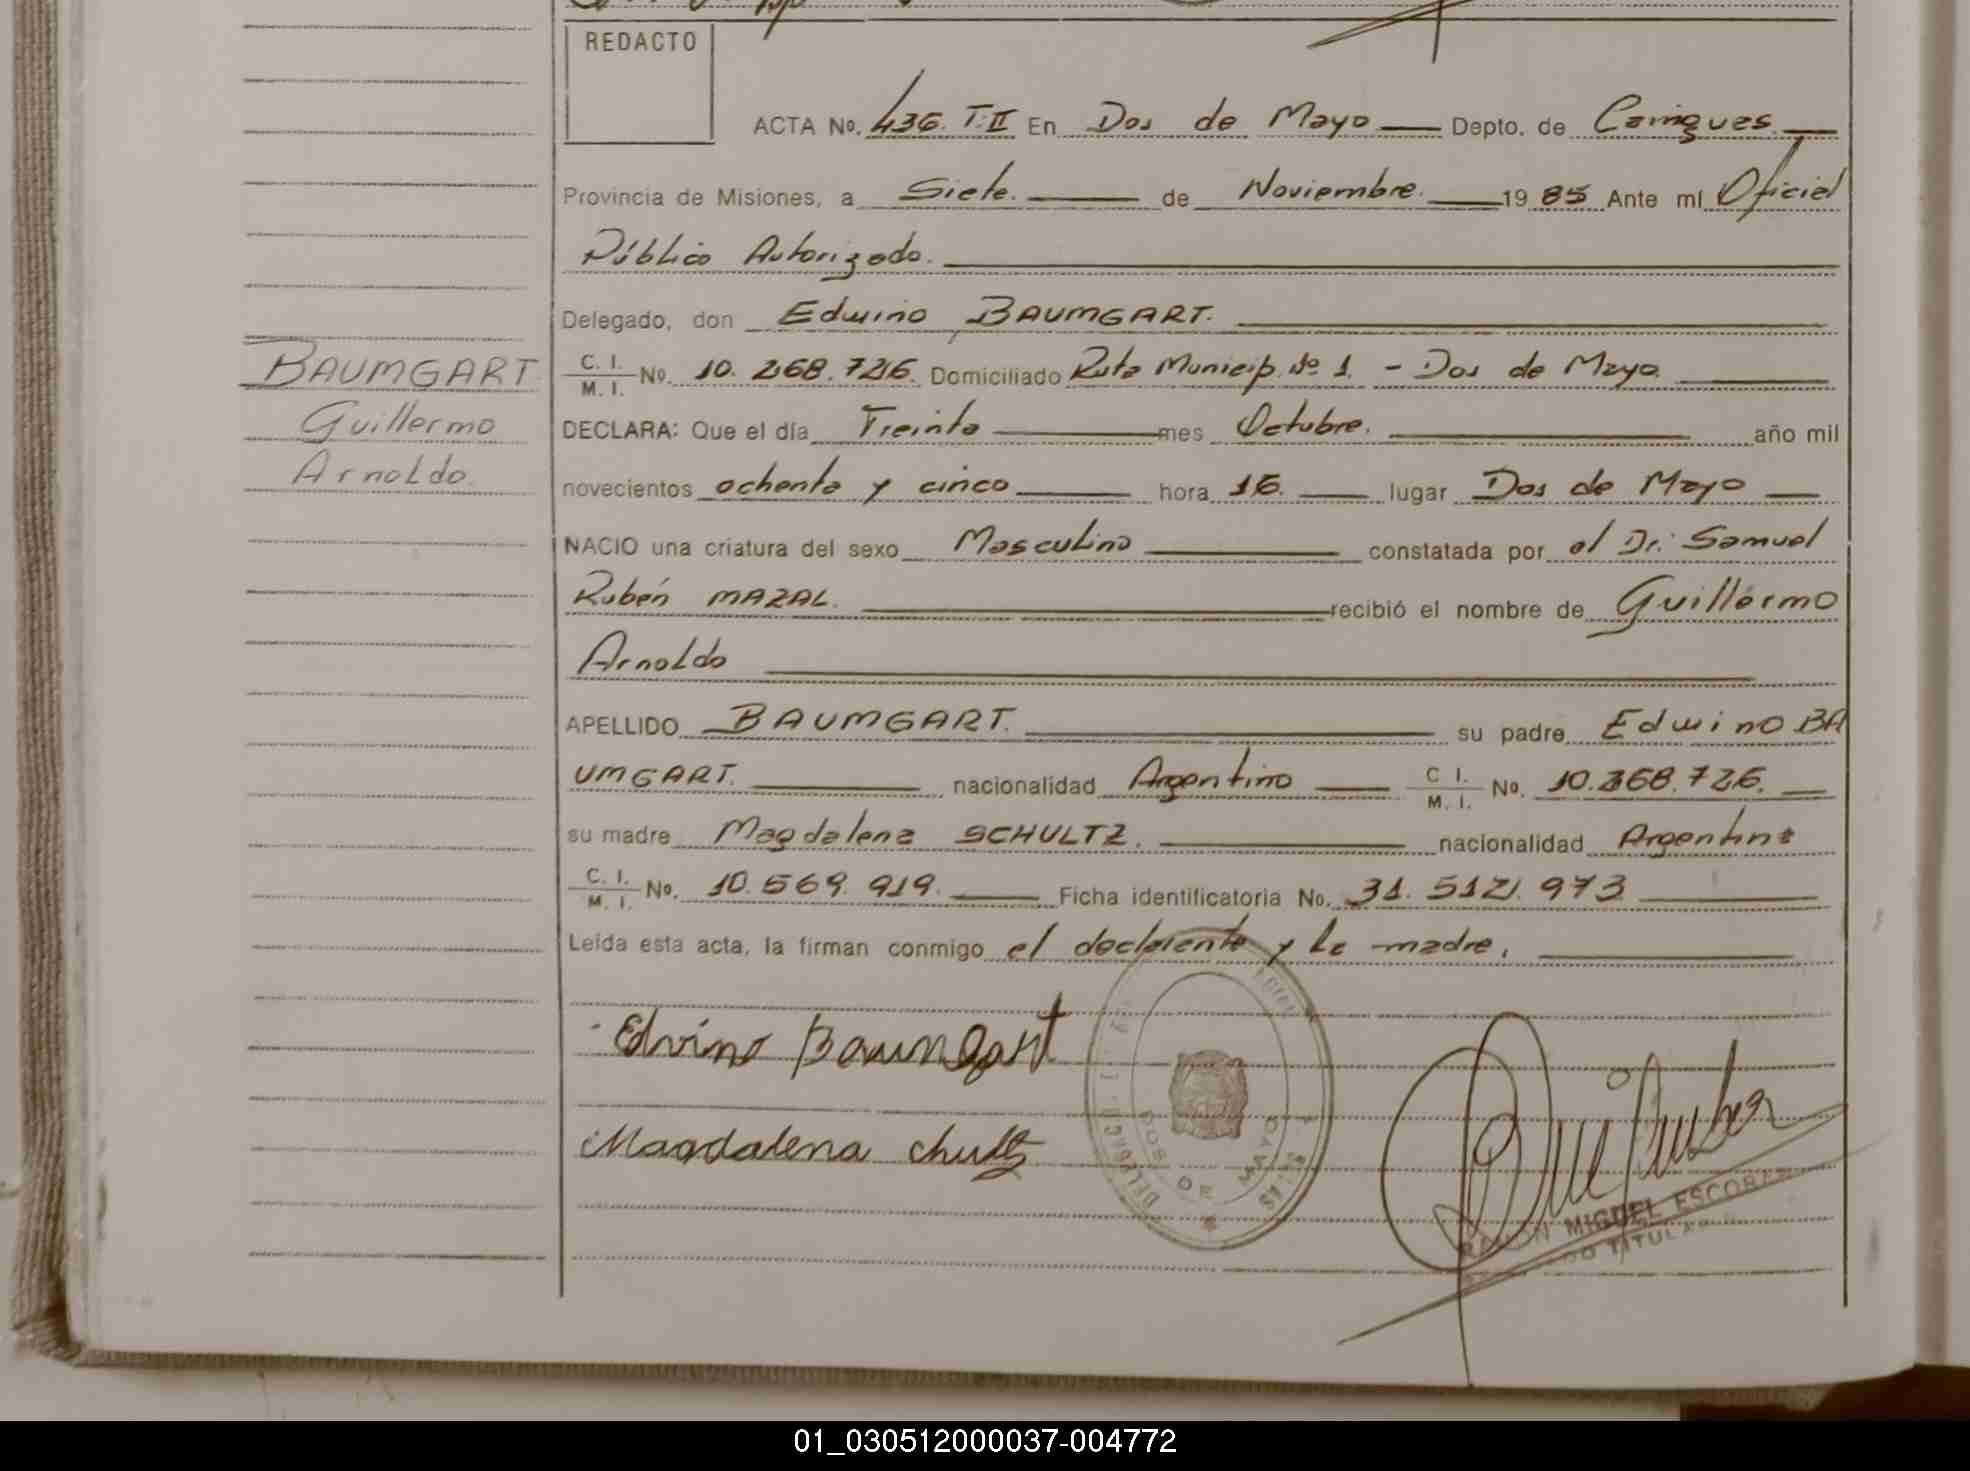 REDACTO
ACTA No. 436. T: II En Dos de Mayo Depto. de Cainguas
Provincia de Misiones, a Siete. de Noviembre. 1985 Ante mí Oficial
Público Autorizado.
Delegado, don Edwino BAUMGART.
C. I. / M. I. No. 10.268.726. Domiciliado Ruta Municip. Nº 1. - Dos de Mayo.
BAUMGART
Guillermo
Arnoldo.
DECLARA: Que el día Treinta mes Octubre. año mil
novecientos ochenta y cinco hora 16. lugar Dos de Mayo
NACIO una criatura del sexo Masculino constatada por el Dr. Samuel
Rubén MAZAL. recibió el nombre de Guillermo
Arnoldo
APELLIDO BAUMGART. su padre Edwino BA
UMGART. nacionalidad Argentino C I. / M. I. No. 10.268.726.
su madre Magdalena SCHULTZ. nacionalidad Argentina
C. I. / M. I. No. 10.569.919. Ficha identificatoria No. 31.512.973
Leída esta acta, la firman conmigo el declarante y la madre.
Edvino Baumgart
Magdalena chultz
DOS DE MAYO
RAMON MIGUEL ESCOBAR
TITULAR
01_030512000037-004772